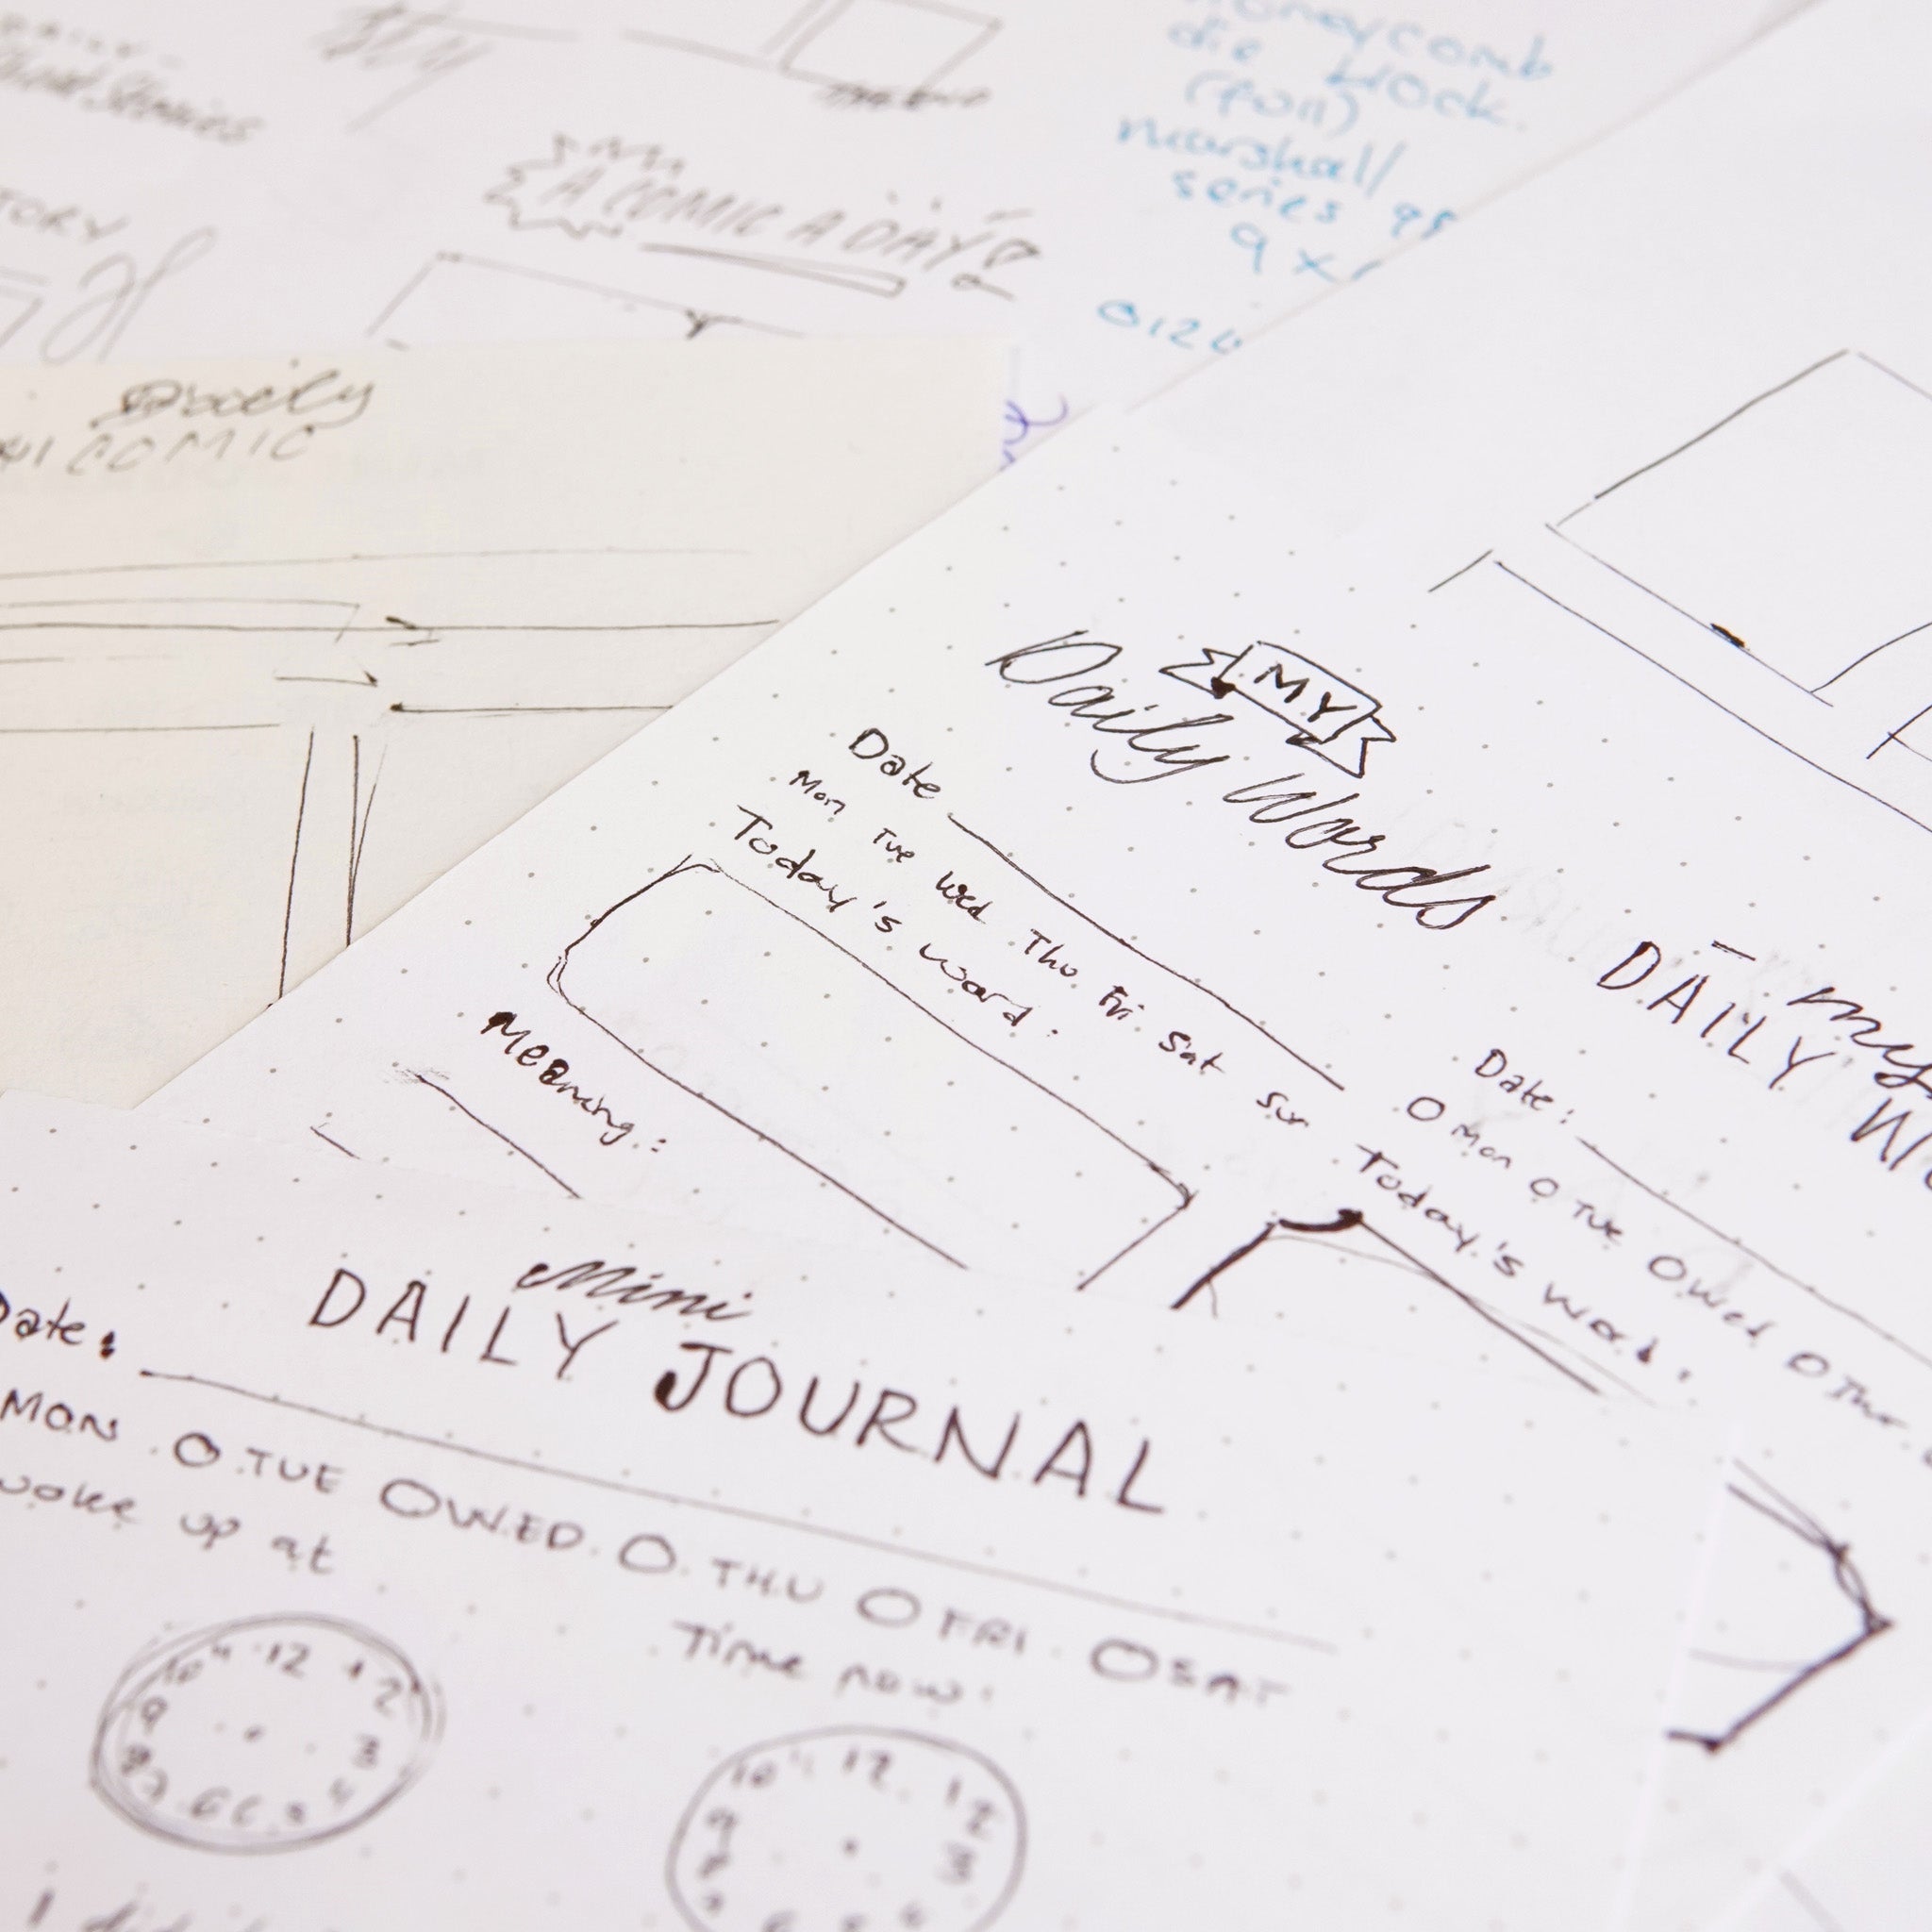 Stories
TORY
A COMIC A DAY!
honeycomb
die block.
(full)
marshall
series
9 x
Daily
COMIC
MY
Daily Words
Date
Mon Tue Wed Thu Fri Sat Sun
Today's word:
Meaning:
my
DAILY
Date:
O Mon O Tue O Wed O Thur
Today's word:
Mini
DAILY JOURNAL
Date:
MON O TUE O WED O THU O FRI O SAT
woke up at
Time now:
10 11 12 1 2
9 3
10 11 12 1 2
9 3